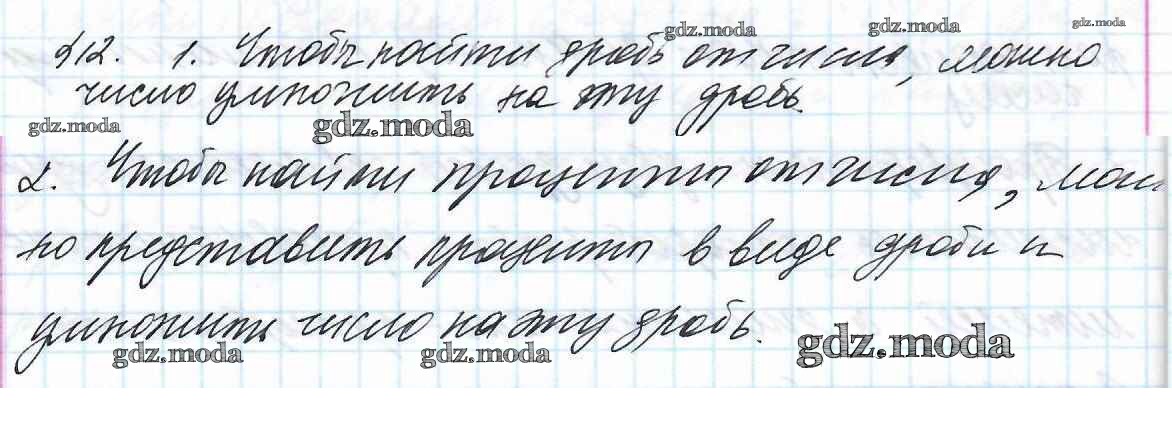 gdz.moda gdz.moda gdz.moda
§12. 1. Чтобы найти дробь от числа, можно
число умножить на эту дробь.
gdz.moda gdz.moda
2. Чтобы найти проценты от числа, мож
но представить проценты в виде дроби и
умножить число на эту дробь.
gdz.moda gdz.moda gdz.moda